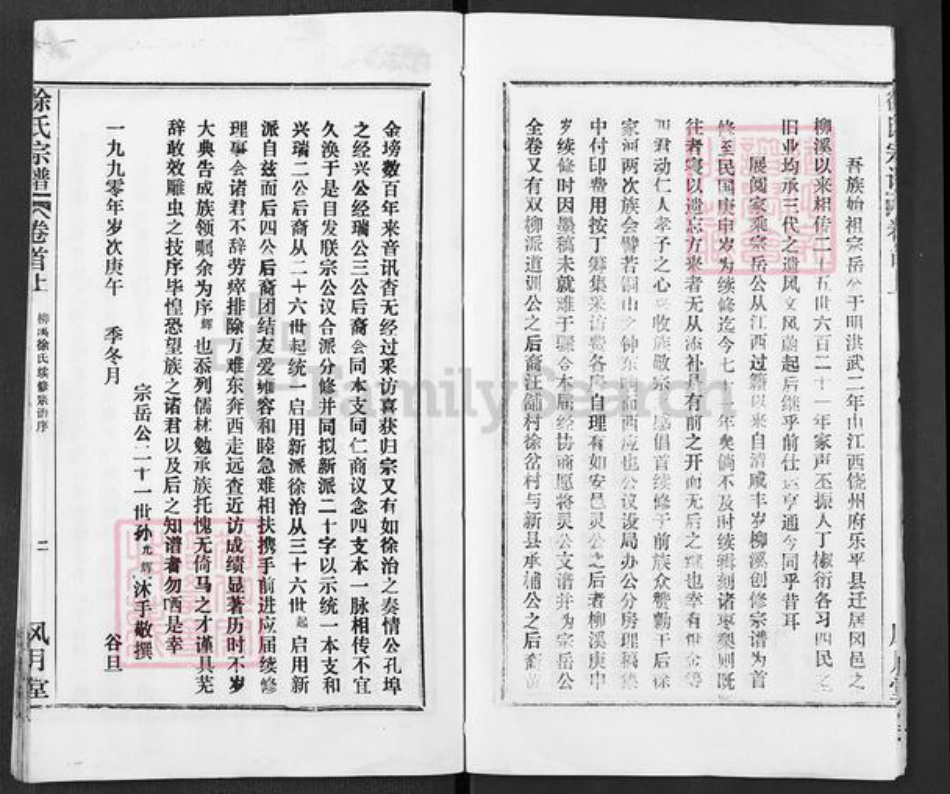 吾族始祖宗岳公于明洪武二年由江西饶州府乐平县迁居冈邑之
柳溪以来相传二十五世六百二十一年家声丕振人丁椒衍各习四民之
旧业均承三代之遗风文风蔚起后继乎前仕运亨通今同乎昔耳
展阅家乘宗岳公从江西过籍以来自清咸丰岁柳溪创修宗谱为首
修至民国庚申岁为续修迄今七十年矣倘不及时续缉刻诸枣梨则既
往者寝以遗忘方来者无从添补具有前之开而无后之继也幸有世金等
四君动仁人孝子之心兴收族敬宗 倡首续修于前族众赞勷于后徐
家河两次族会譬若铜山之钟东响而西应也公议设局办公分房理稿集
中付印费用按丁筹集采访费各房自理有如安邑灵公之后者柳溪庚申
岁续修时因墨稿未就难于骤合本届经协商愿将灵公文谱并为宗岳公
全卷又有双柳派道训公之后裔汪铺村徐岔村与新县承浦公之后裔黄
金塝数百年来音讯杳无经过采访喜获归宗又有如徐治之奏情公孔埠
之经兴公经瑞公三公后裔会同本支同仁商议念四支本一脉相传不宜
久涣于是目发联宗公议合派分修并同拟新派二十字以示统一本支和
兴瑞二公后裔从二十六世起统一启用新派徐治从三十六世起启用新
派自兹而后四公后裔团结友爱雍容和睦急难相扶携手前进应届续修
理事会诸君不辞劳瘁排除万难东奔西走远查近访成绩显著历时不岁
大典告成族领嘱余为序辉也忝列儒林勉承族托愧无倚马之才谨具芜
辞敢效雕虫之技序毕惶恐望族之诸君以及后之知谱者勿哂是幸
宗岳公二十一世孙光辉沐手敬撰
一九九零年岁次庚午 季冬月 谷旦
徐氏宗谱 卷首上 柳溪徐氏续修宗谱序 二 风月堂